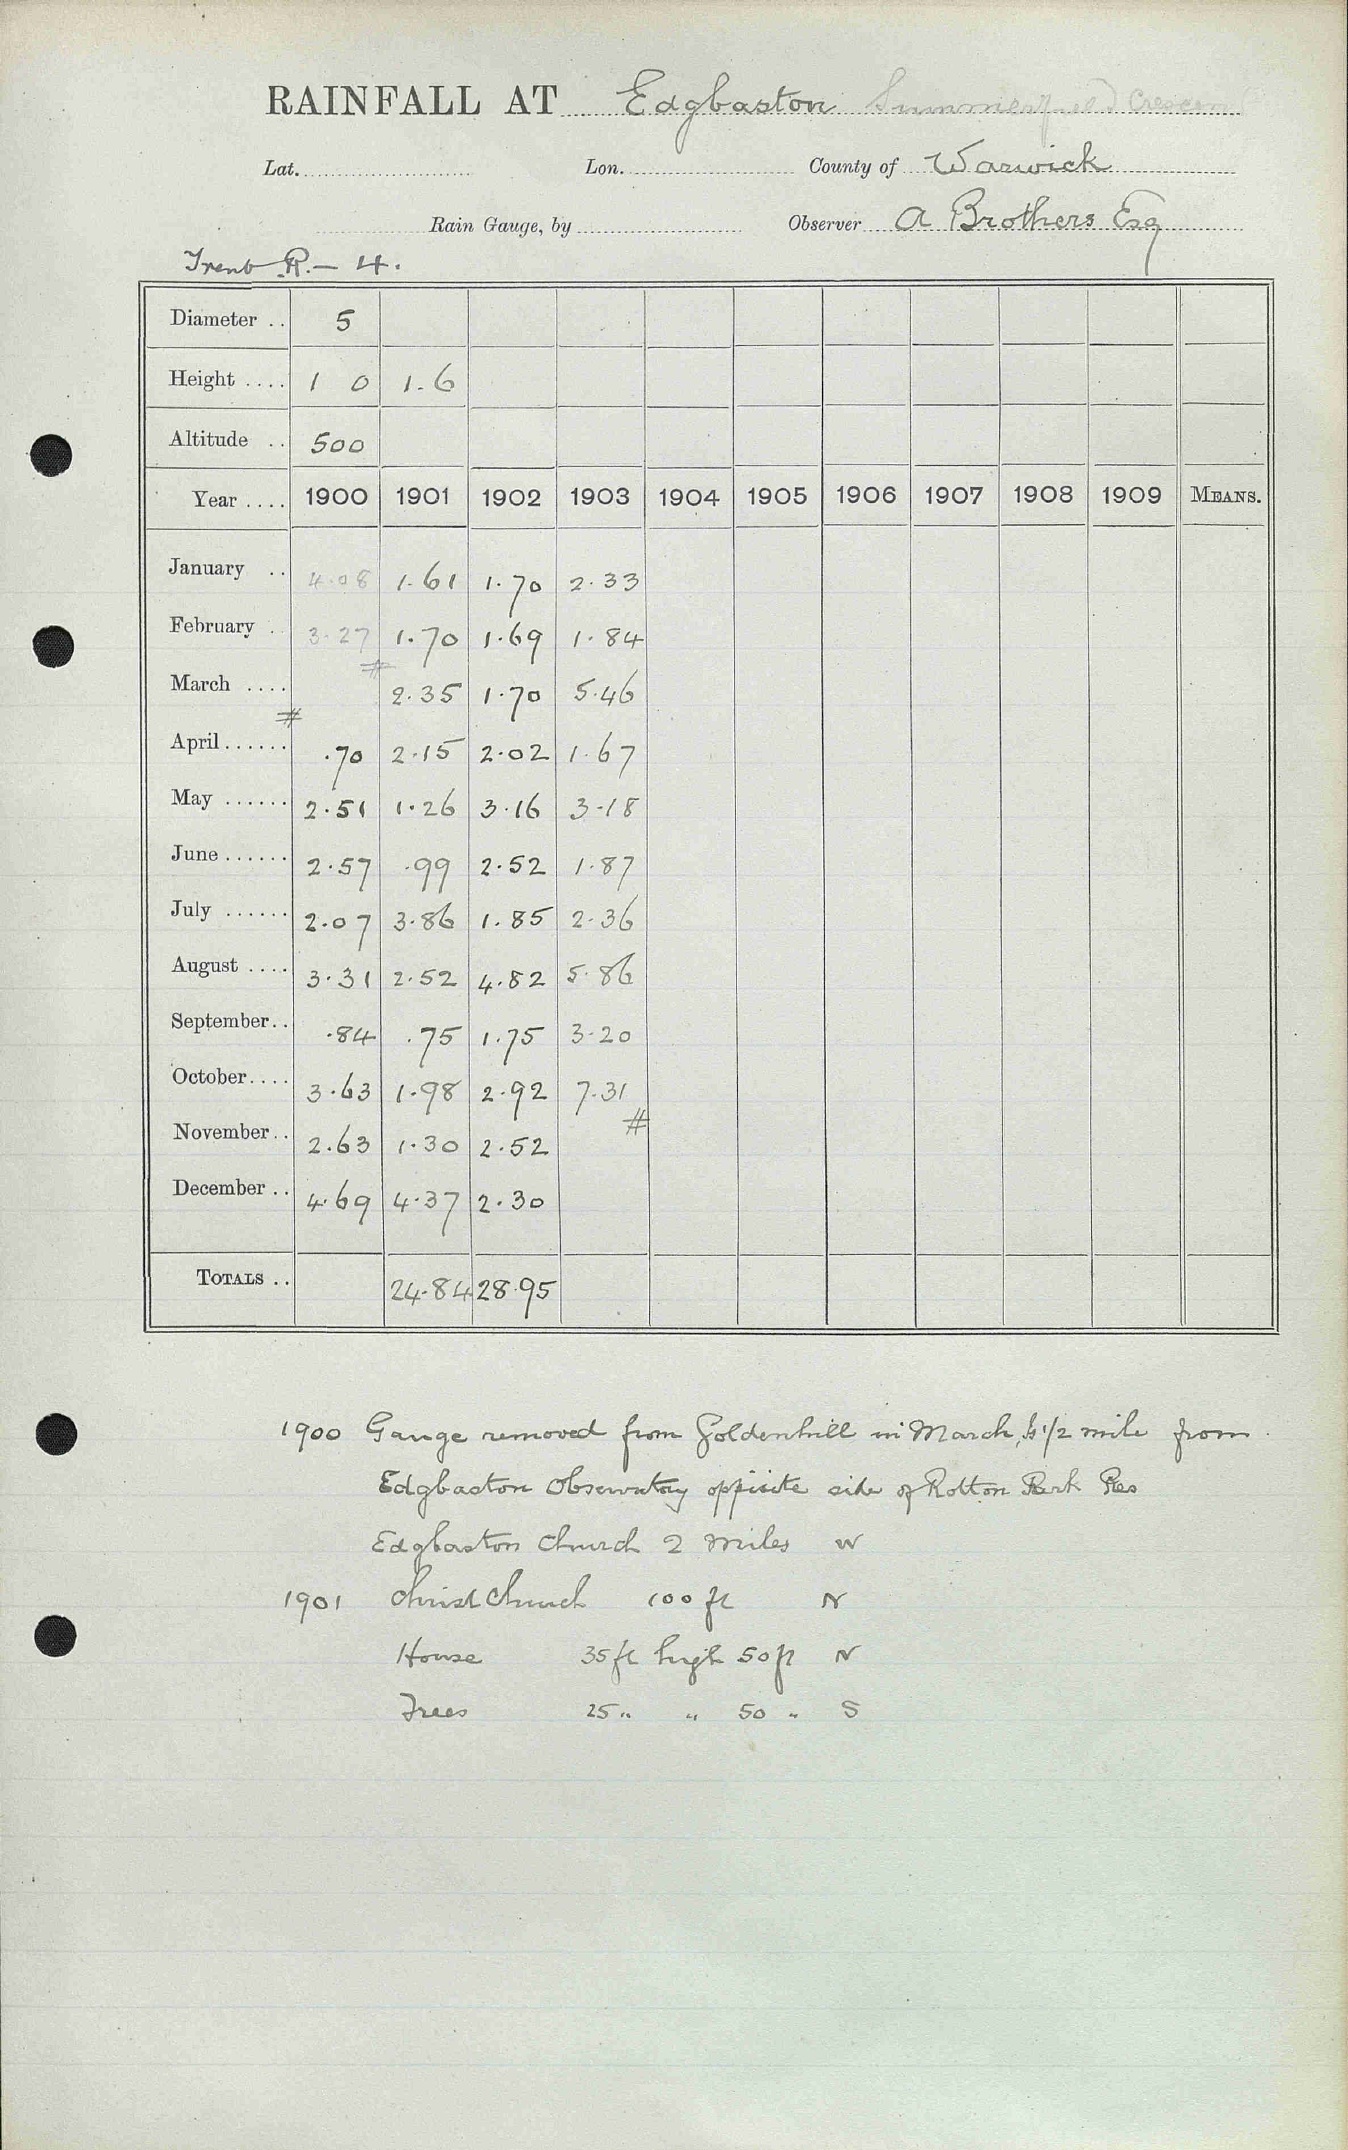 RAINFALL AT Edgbaston Summerfield Crescent
Lat. Lon. County of Warwick
Rain Gauge, by Observer A Brothers Esq
Trent R.— 4.
Diameter .. 5
Height .... 1 0 1.6
Altitude .. 500
Year .... 1900 1901 1902 1903 1904 1905 1906 1907 1908 1909 MEANS.
January .. 4.08 1.61 1.70 2.33
February . 3.27 1.70 1.69 1.84
March .... # 2.35 1.70 5.46
April...... # .70 2.15 2.02 1.67
May ...... 2.51 1.26 3.16 3.18
June...... 2.57 .99 2.52 1.87
July ...... 2.07 3.86 1.85 2.36
August .... 3.31 2.52 4.82 5.86
September.. .84 .75 1.75 3.20
October.... 3.63 1.98 2.92 7.31
November.. 2.63 1.30 2.52 #
December .. 4.69 4.37 2.30
TOTALS .. 24.84 28.95
1900 Gauge removed from Goldenhill in March, 1/2 mile from
Edgbaston Observatory opposite side of Rotton Park Res
Edgbaston Church 2 miles W
1901 Christ Church 100 ft N
House 35 ft high 50 ft N
Trees 25 " " 50 " S